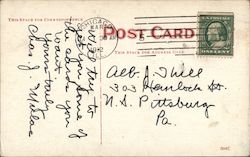 THIS SPACE FOR CORRESPONDENCE
CHICAGO
POST CARD
THIS SPACE FOR ADDRESS ONLY
Will try to
get you some of
the cards you
want
Yours truly
Chas. J.
Alb. J. Hill
303 Hemlock St.
N.S. Pittsburg
Pa.